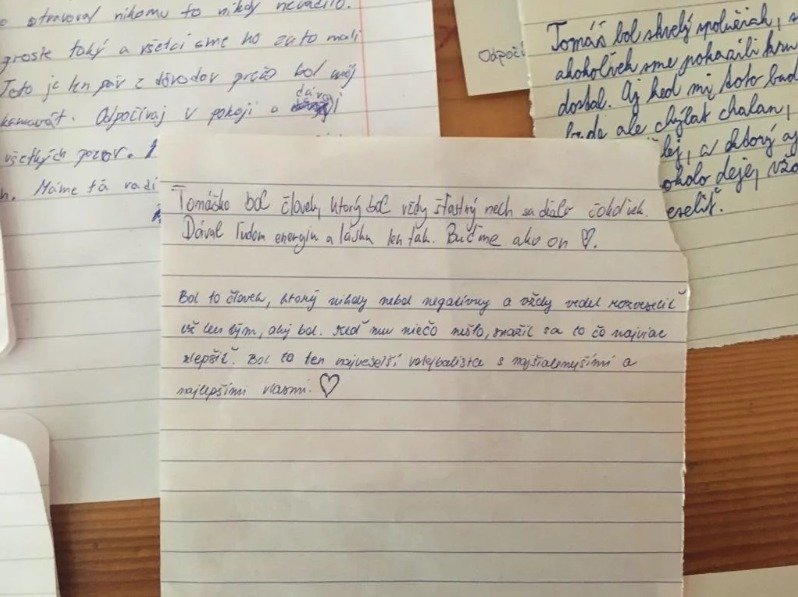 otravoval nikomu to nikdy nevadilo.
proste taký a všetci sme ho zato mali
Toto je len pár z dôvodov prečo bol môj
kamarát. Odpočívaj v pokoji a dávaj
všetkých pozor.
Máme ťa radi
Odpočí
Tomáš bol skvelý spolužiak, s
akoholiek sme pokazili hneď
dostal. Aj keď mi toto bud
bude ale chýbať chalan,
lej, a ktorý aj
okolo deje, vžd
eseliť.
Tomáško bol človek, ktorý bol vždy šťastný nech sa dialo čokoľvek.
Dával ľudom energiu a lásku len tak. Buďme ako on ♡.
Bol to človek, ktorý nikdy nebol negatívny a vždy vedel rozveseliť
už len tým, aký bol. Keď mu niečo nešlo, snažil sa to čo najviac
zlepšiť. Bol to ten najveselší volejbalista s najšialenejšími a
najlepšími vlasmi. ♡